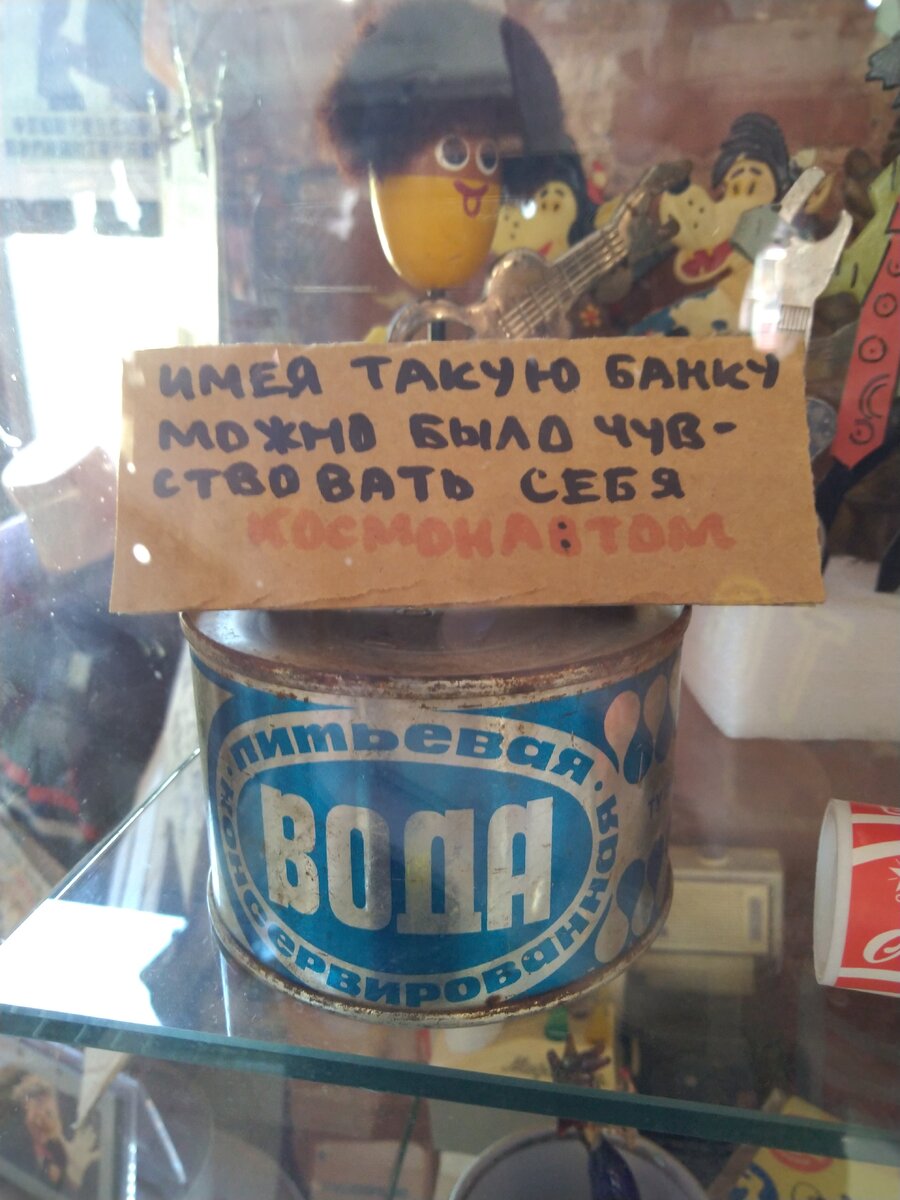 ИМЕЯ ТАКУЮ БАНКУ
МОЖНО БЫЛО ЧУВ-
СТВОВАТЬ СЕБЯ
КОСМОНАВТОМ
ПИТЬЕВАЯ
ВОДА
КОНСЕРВИРОВАННАЯ